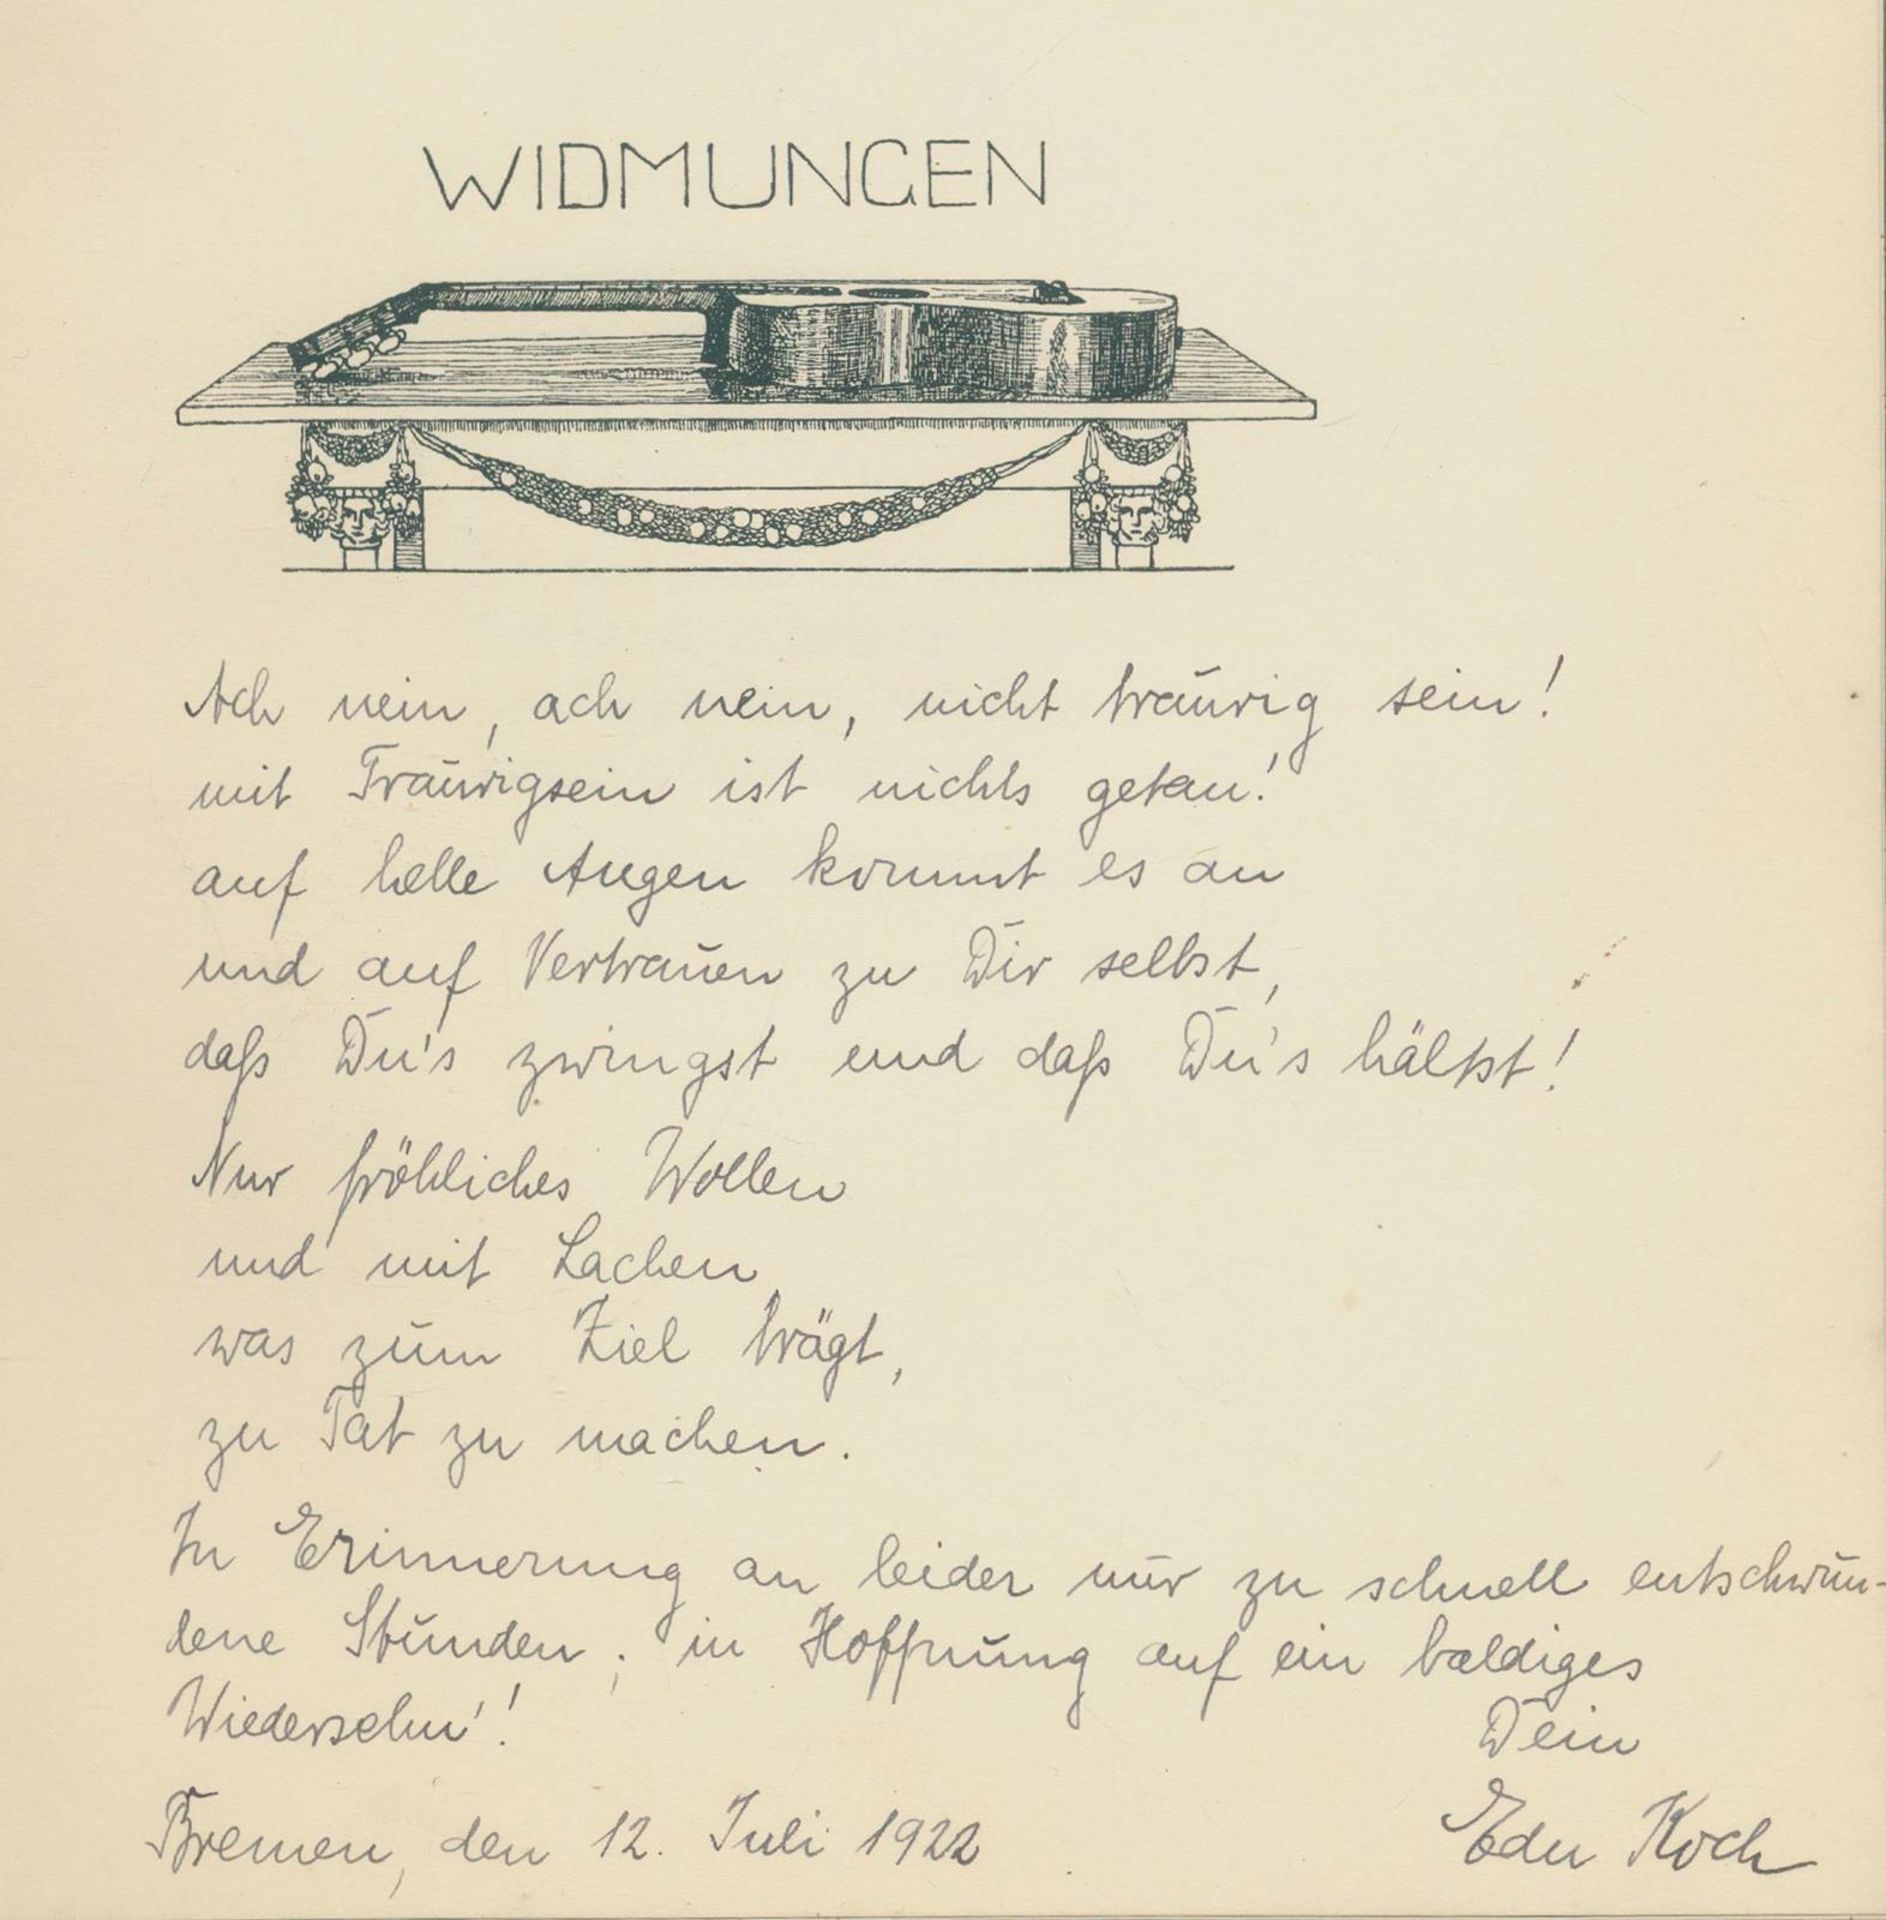 WIDMUNGEN
Ach nein, ach nein, nicht traurig sein!
mit Traurigsein ist nichts getan!
auf helle Augen kommt es an
und auf Vertrauen zu Dir selbst,
daß Du's zwingst und daß Du's hältst!
Nur fröhliches Wollen
und mit Lachen,
was zum Ziel trägt,
zu Tat zu machen.
In Erinnerung an leider nur zu schnell entschwun-
dene Stunden; in Hoffnung auf ein baldiges
Wiedersehn'!
Dein
Bremen, den 12. Juli 1922
Edu Koch